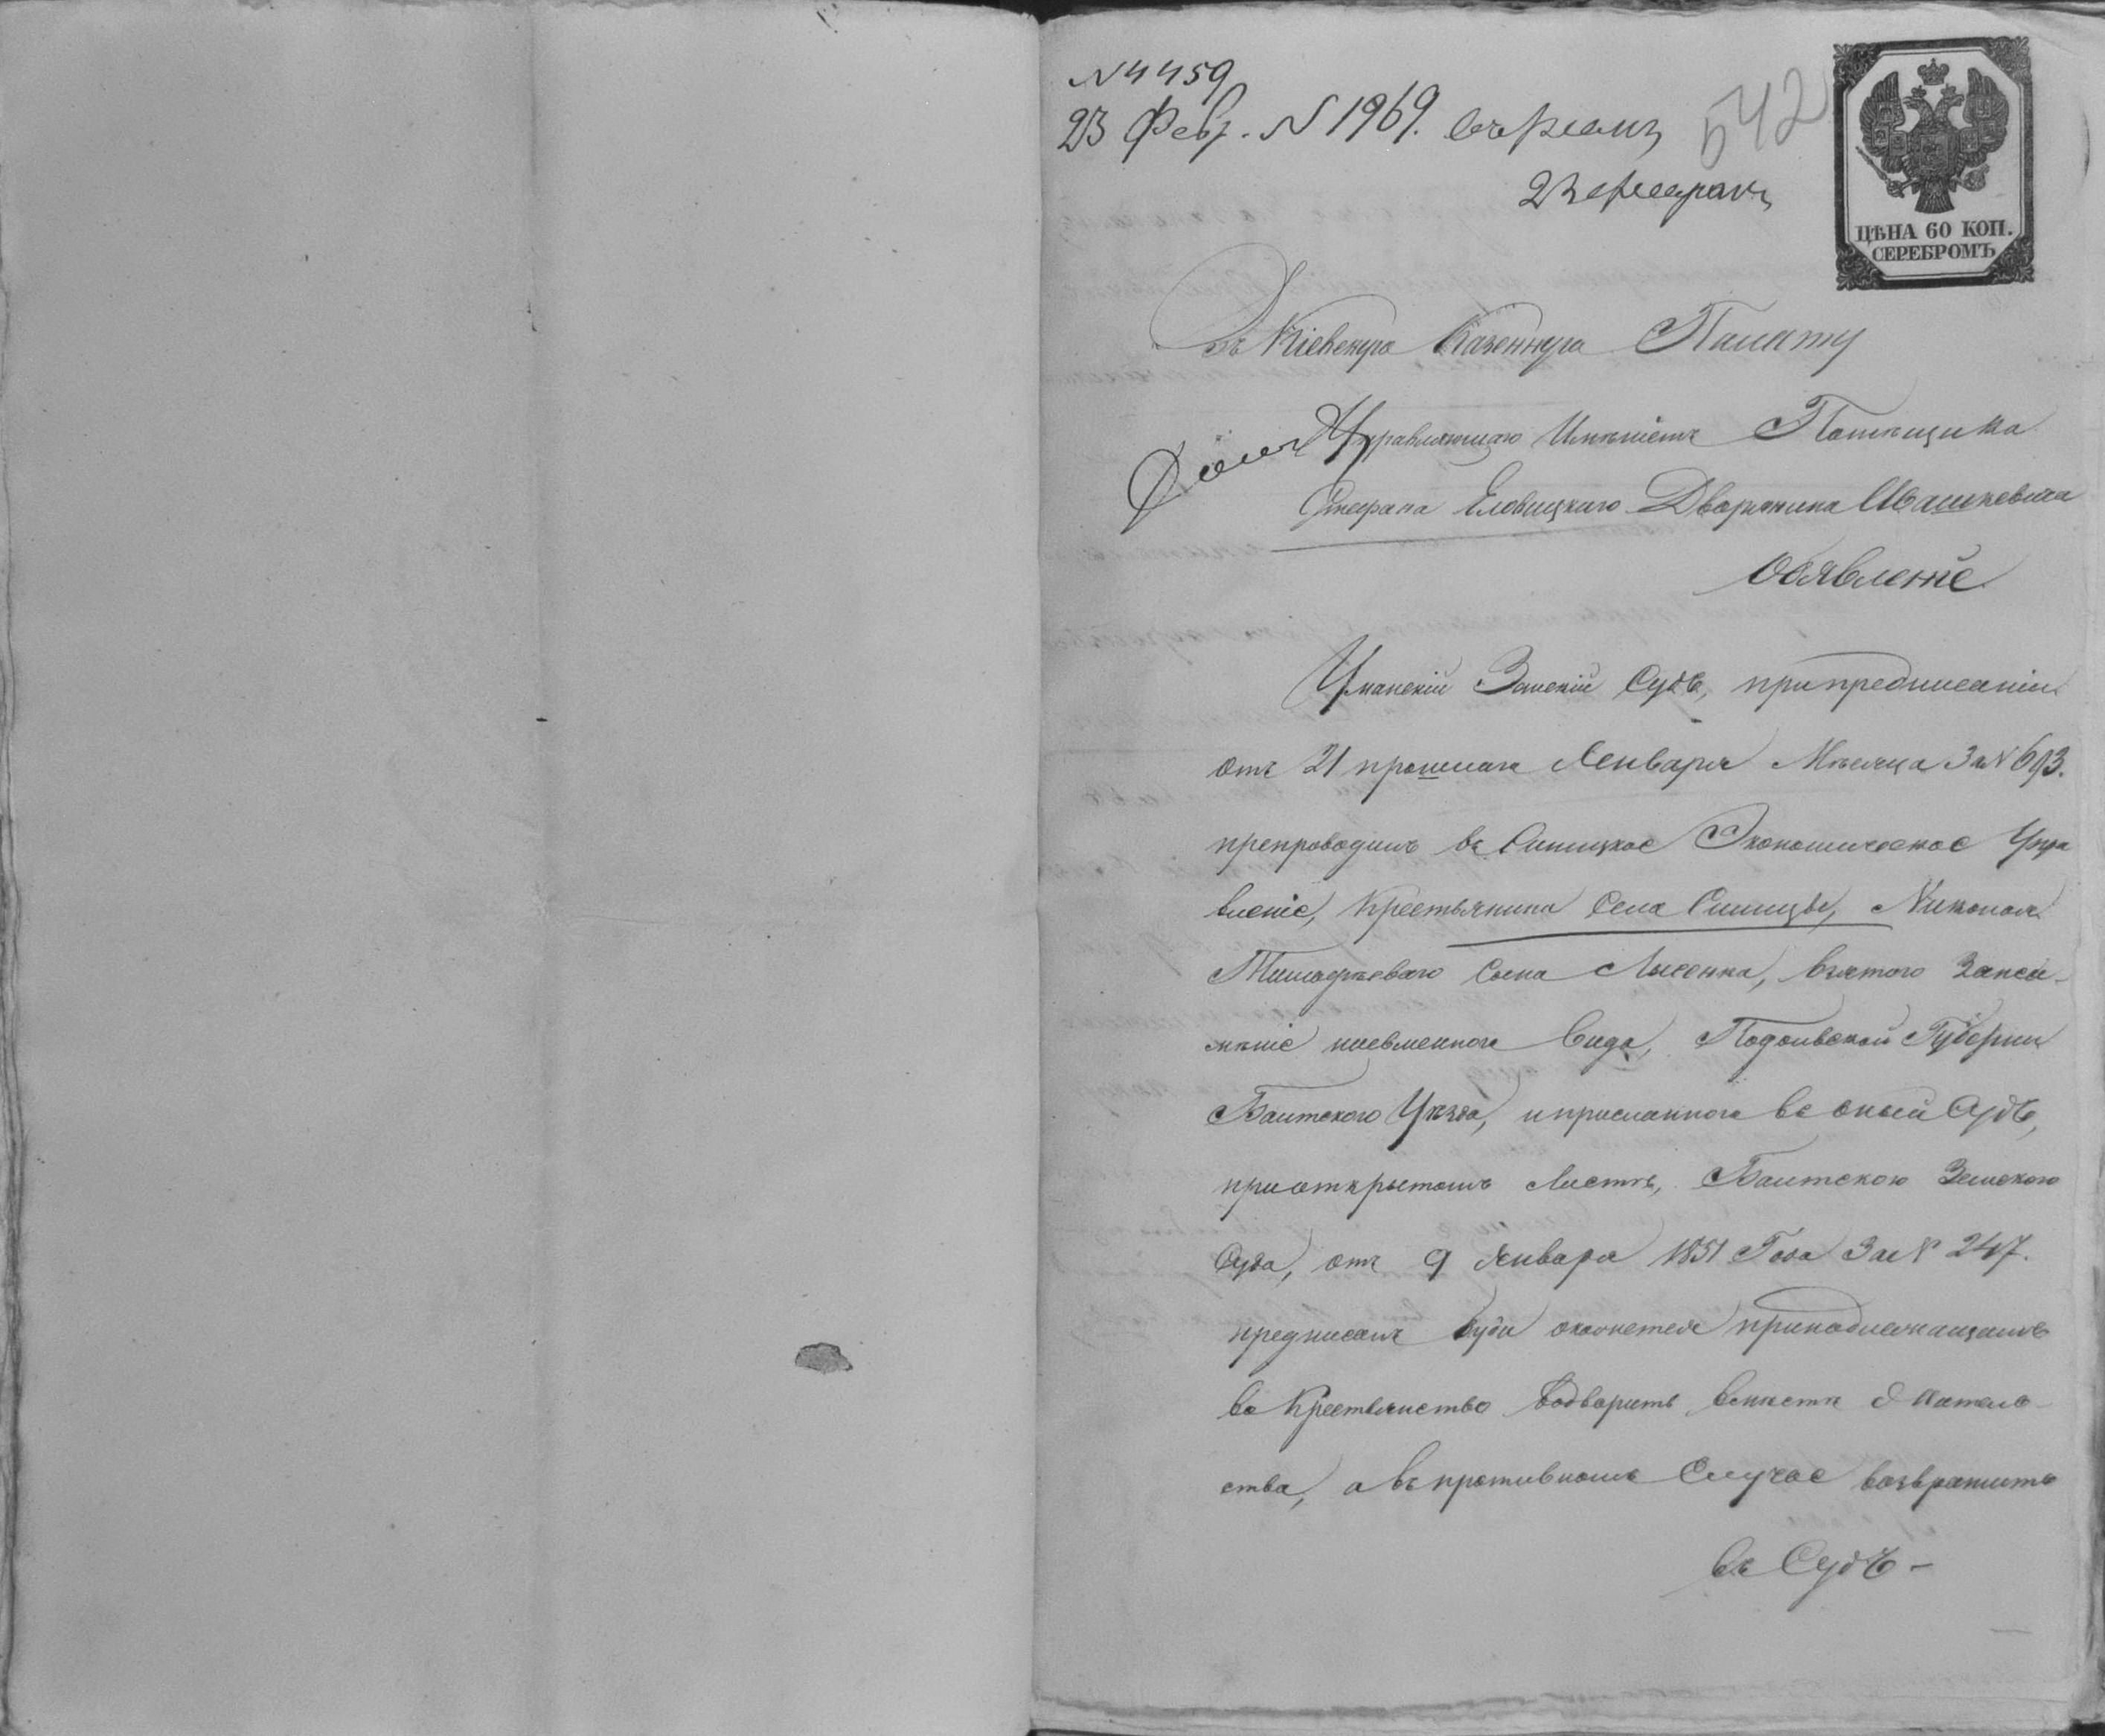 N 4459
23 Февр. N 1969.
542
ЦѢНА 60 КОП.
СЕРЕБРОМЪ
Въ Кіевскую Казенную Палату
Управляющаго Имѣніемъ Помѣщика
Стефана Еловицкаго Дворянина Ивашкевича
Объявленіе
Уманскій Земскій Судъ, при предписаніи
отъ 21 прошлаго Января Мѣсяца За N 693.
препроводилъ въ Синицкое Экономическое Упра
вленіе, Крестьянина Села Синицы, Николая
Тимофѣеваго Сына Лысенка, взятого За неи-
мѣніе письменного вида, Подольской Губерніи
Балтского Уѣзда, и присланного въ оный Судъ,
при открытомъ Листѣ, Балтскою Земского
Суда, отъ 9 Января 1851 Года За N 247.
предписалъ буди окажется принадлежащимъ
въ Крестьянство водворить вмѣстѣ жительс-
ства, а въ противномъ Случае возвратить
въ Судъ –